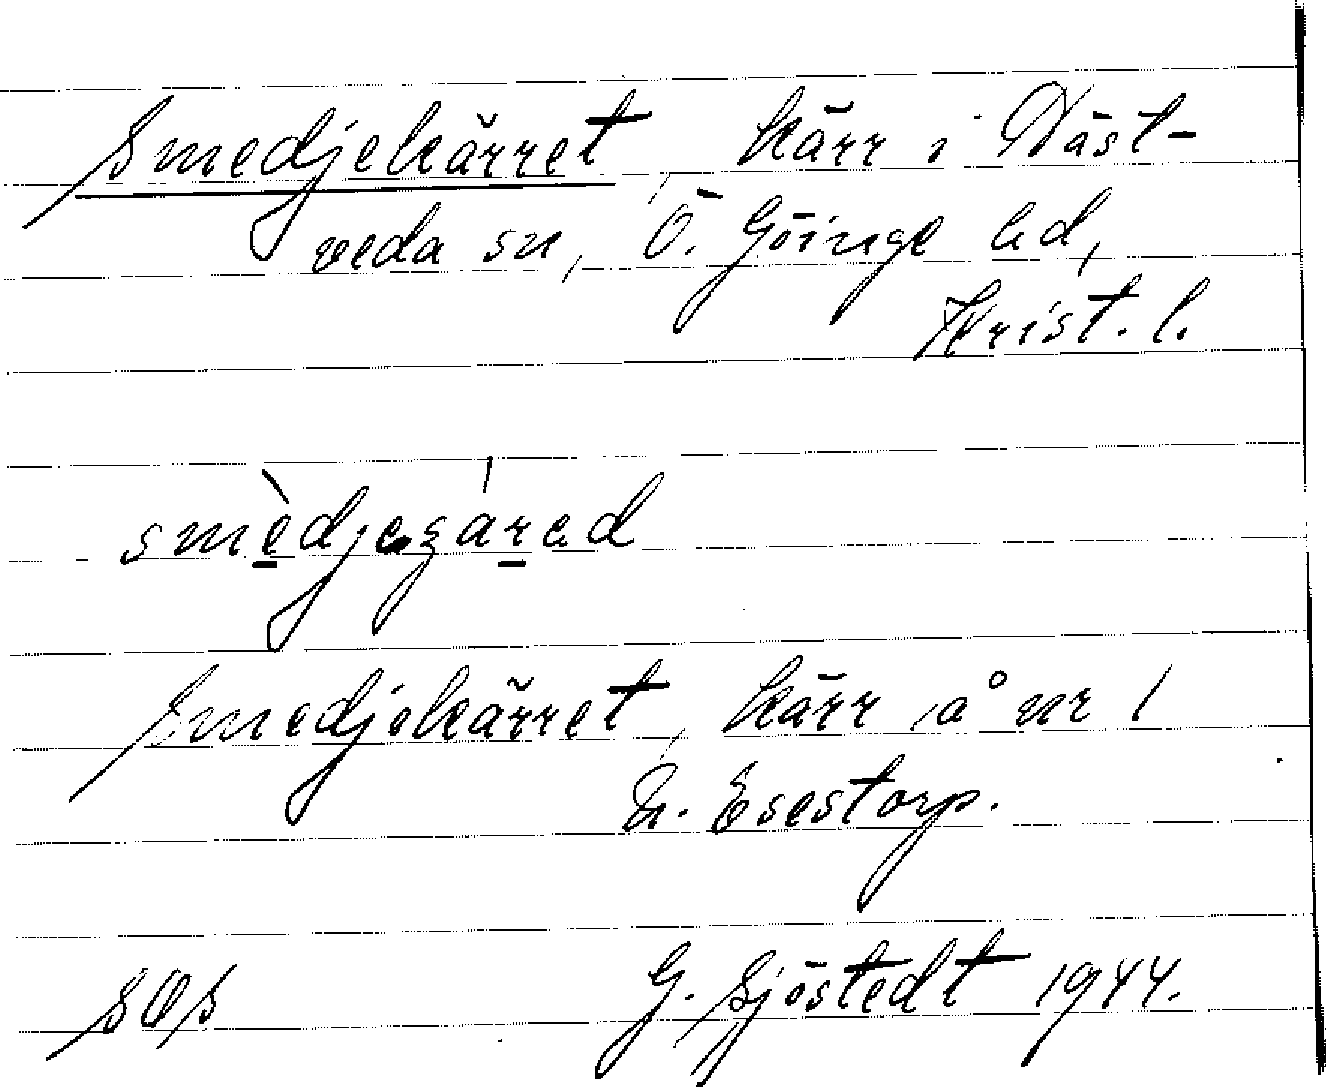 Smedjekärret, kärr i Väst-
veda sn, Ö. Göinge hd,
Krist. l.
Smedjekärret, kärr å nr 1
N. Esestorp.
SOS G. Sjöstedt 1944.